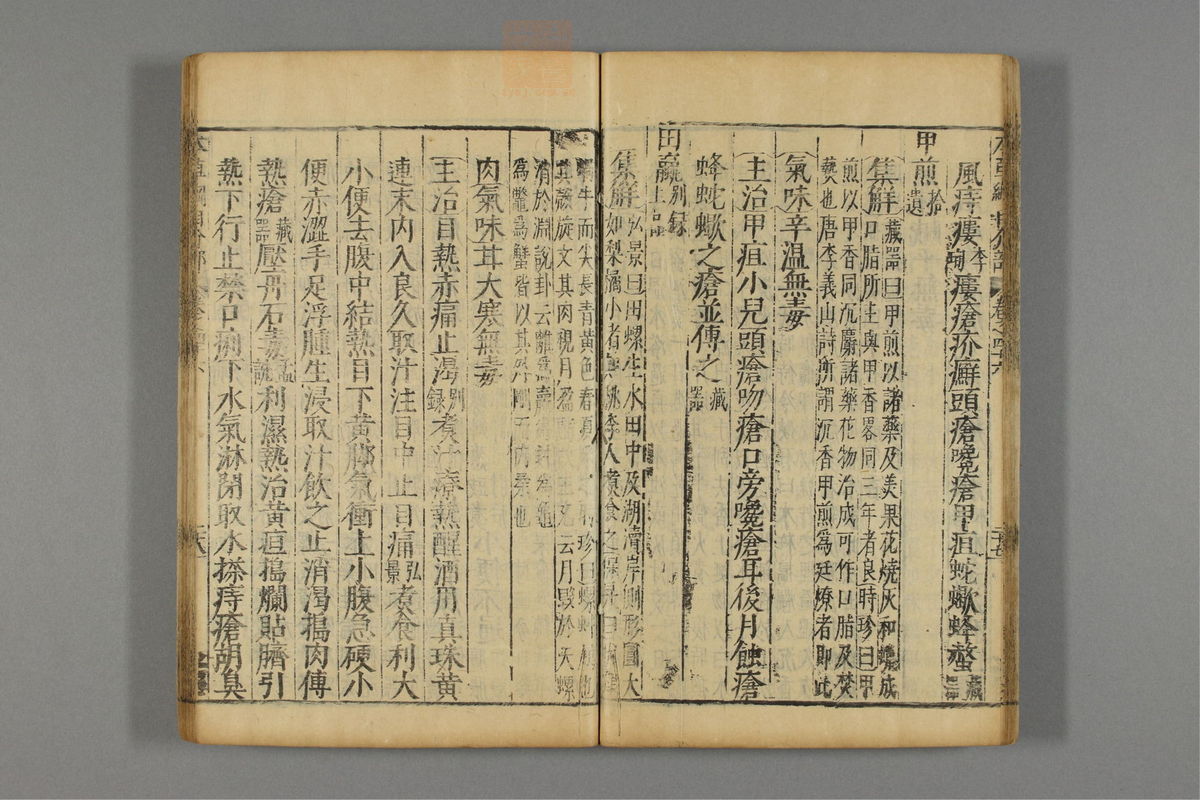 風痔瘻李珣瘻瘡疥癬頭瘡嚵瘡甲疽蛇蠍蜂螫藏器
甲煎拾遺
集解藏器曰甲煎以諸藥及美果花燒灰和蠟成
口脂所主與甲香畧同三年者良時珍曰甲
煎以甲香同沉麝諸藥花物治成可作口脂及焚
爇也唐李義山詩所謂沉香甲煎爲廷燎者即此
氣味辛温無毒
主治甲疽小兒頭瘡吻瘡口旁嚵瘡耳後月蝕瘡
蜂蛇蠍之瘡並傅之藏器
田蠃別錄上品
集解弘景曰田螺生水田中及湖瀆岸側形圓大
如梨橘小者如桃李人煮食之保昇曰狀
蝸牛而尖長青黄色春夏
其殻旋文其肉視月盈 云月毀於天螺
消於淵說卦云離爲
爲鼈爲蟹皆以其外剛而内柔也
肉氣味甘大寒無毒
主治目熱赤痛止渴別錄煮汁療熱醒酒用真珠黄
連末内入良久取汁注目中止目痛弘景煮食利大
小便去腹中結熱目下黄脚氣衝上小腹急硬小
便赤澀手足浮腫生浸取汁飲之止消渴搗肉傅
熱瘡藏器壓丹石毒孟詵利濕熱治黄疸搗爛貼臍引
熱下行止禁口痢下水氣淋閉取水搽痔瘡胡臭